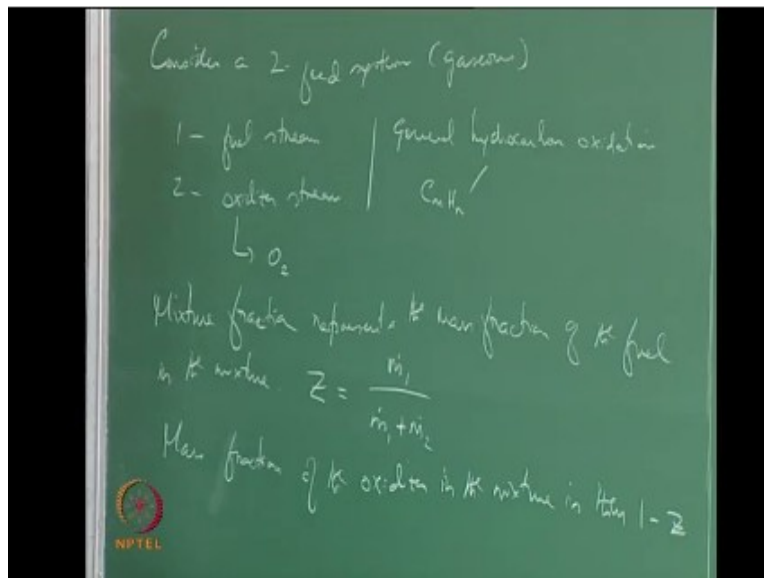 Consider a 2-feed system (gaseous)
1 - fuel stream | General hydrocarbon oxidation
2 - oxidizer stream | CmHn
↳ O2
Mixture fraction represents the mass fraction of the fuel
in the mixture. Z = ṁ1 / (ṁ1 + ṁ2)
Mass fraction of the oxidizer in the mixture is then 1 - Z
NPTEL